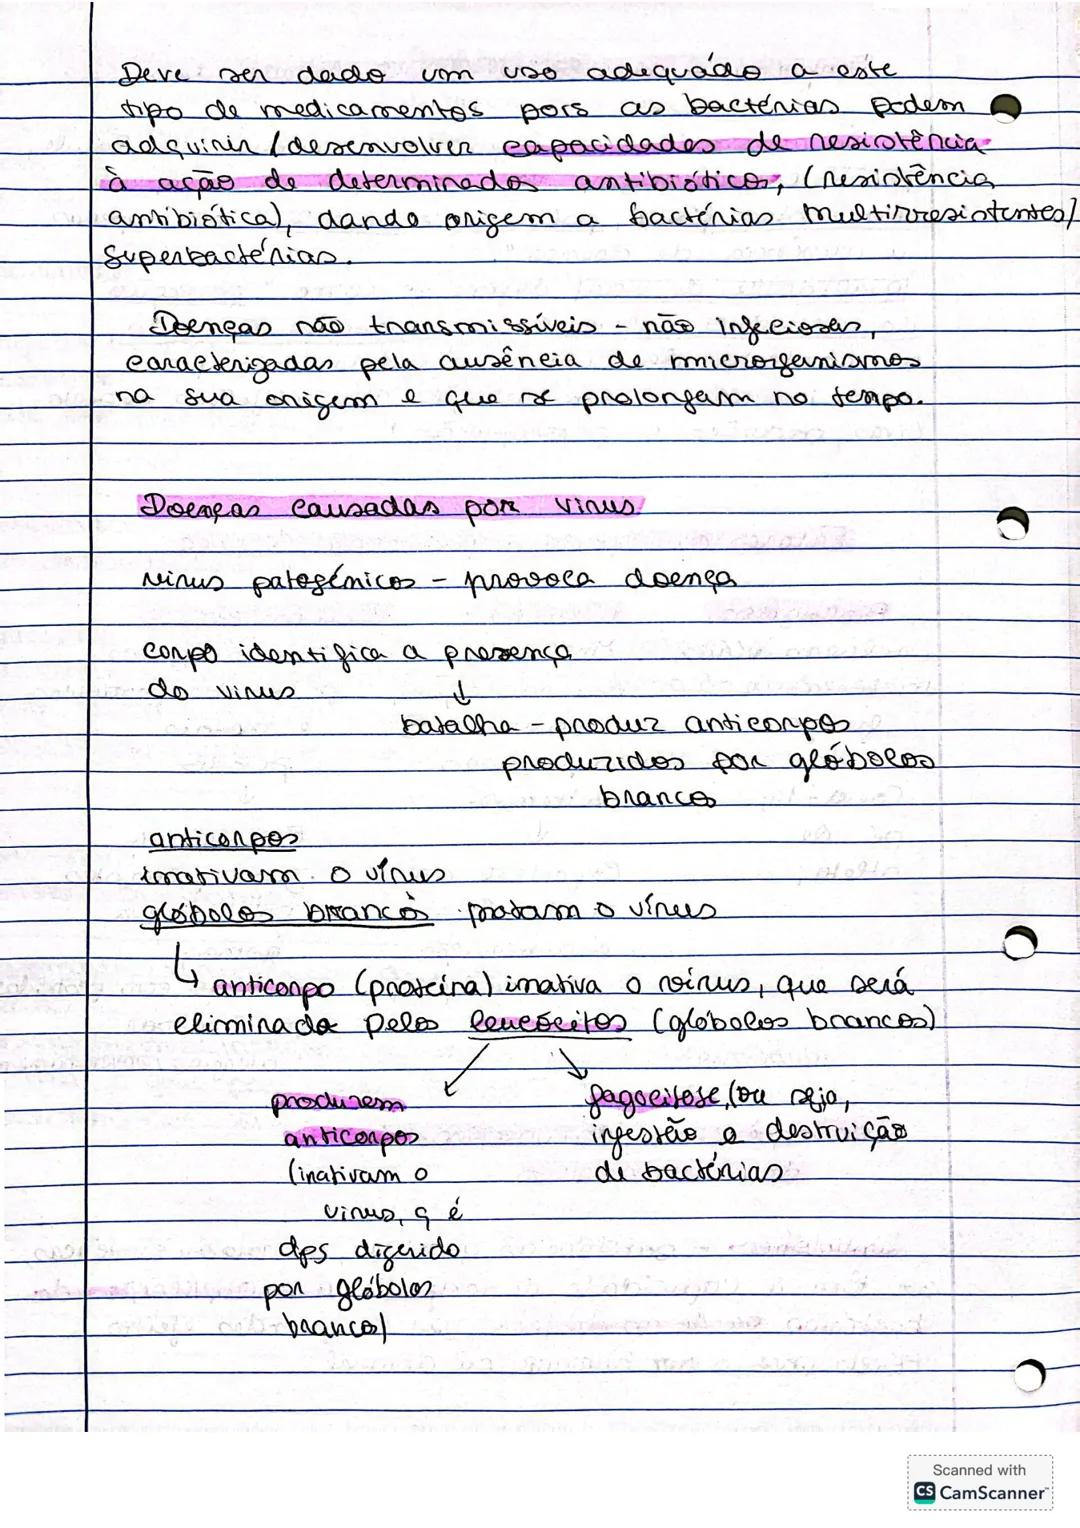 Deve ser dado um uso adequado a este
tipo de medicamentos pois as bactérias podem
adquirir / desenvolver capacidades de resistência
à ação de determinados antibióticos, (resistência
antibiótica), dando origem a bactérias multirresistentes/
superbactérias.
Doenças não transmissíveis - não infeciosas,
caracterizadas pela ausência de microrganismos
na sua origem e que se prolongam no tempo.
Doenças causadas por vírus
vírus patogénicos - provoca doença
corpo identifica a presença
do vírus
↓
batalha - produz anticorpos
produzidos por glóbolos
brancos
anticorpos
inativam o vírus
glóbolos brancos matam o vírus
↳ anticorpo (proteína) inativa o vírus, que será
eliminado pelos leucócitos (glóbolos brancos)
produzem
anticorpos
(inativam o
vírus, q é
dps digerido
por glóbolos
brancos)
fagocitose, (ou seja,
ingestão e destruição
de bactérias
Scanned with
CS CamScanner